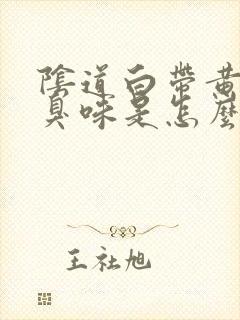 陰道白帶黃
臭味是怎麼
王社旭